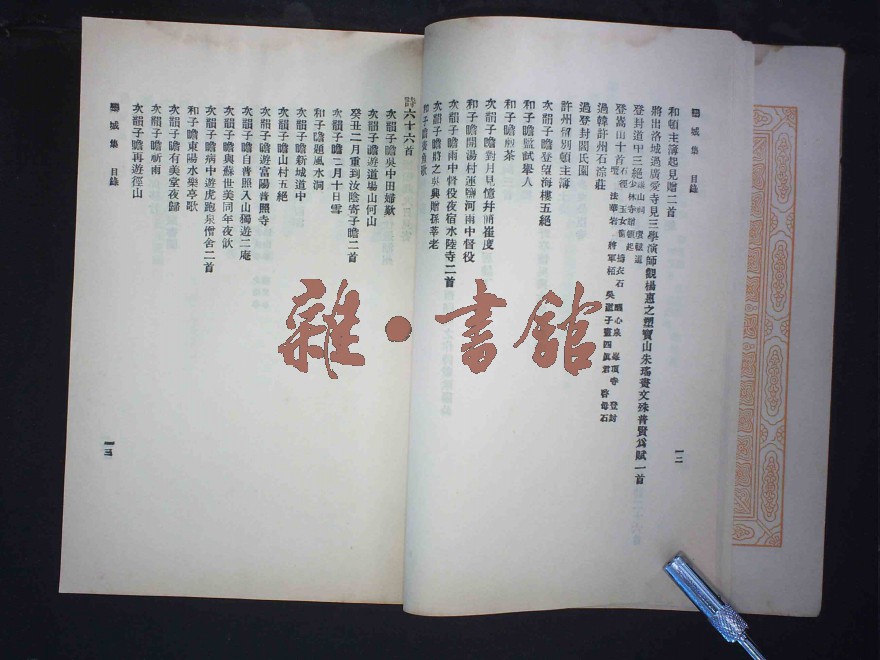 欒城集 目錄
和頓主簿起見贈二首
將出洛城過廣愛寺見三學演師觀楊惠之塑寶山朱瑤畫文殊普賢為賦一首
登封道中三絕
少林寺贈頓起
登嵩山十首
玉女窗 擣衣石 醒心泉 峯頂寺 登封
壇 法華岩 將軍柏 吳道子畫四眞君 啓母石
過韓許州石淙莊
過登封閻氏園
許州留別頓主簿
次韻子瞻登望海樓五絕
和子瞻監試舉人
和子瞻煎茶
次韻子瞻對月見憶井簡崔度
和子瞻開湯村運鹽河雨中督役
次韻子瞻雨中督役夜宿水陸寺二首
次韻子瞻將之吳興贈孫莘老
一二
詩六十六首
次韻子瞻吳中田婦歎
次韻子瞻遊道場山何山
癸丑二月重到汝陰寄子瞻二首
次韻子瞻二月十日雪
和子瞻題風水洞
次韻子瞻新城道中
次韻子瞻山村五絕
次韻子瞻遊富陽普照寺
次韻子瞻自普照入山獨遊二庵
次韻子瞻與蘇世美同年夜飲
次韻子瞻病中遊虎跑泉僧舍二首
和子瞻東陽水樂亭歌
次韻子瞻有美堂夜歸
次韻子瞻祈雨
次韻子瞻再遊徑山
欒城集 目錄
一三
雜·書館